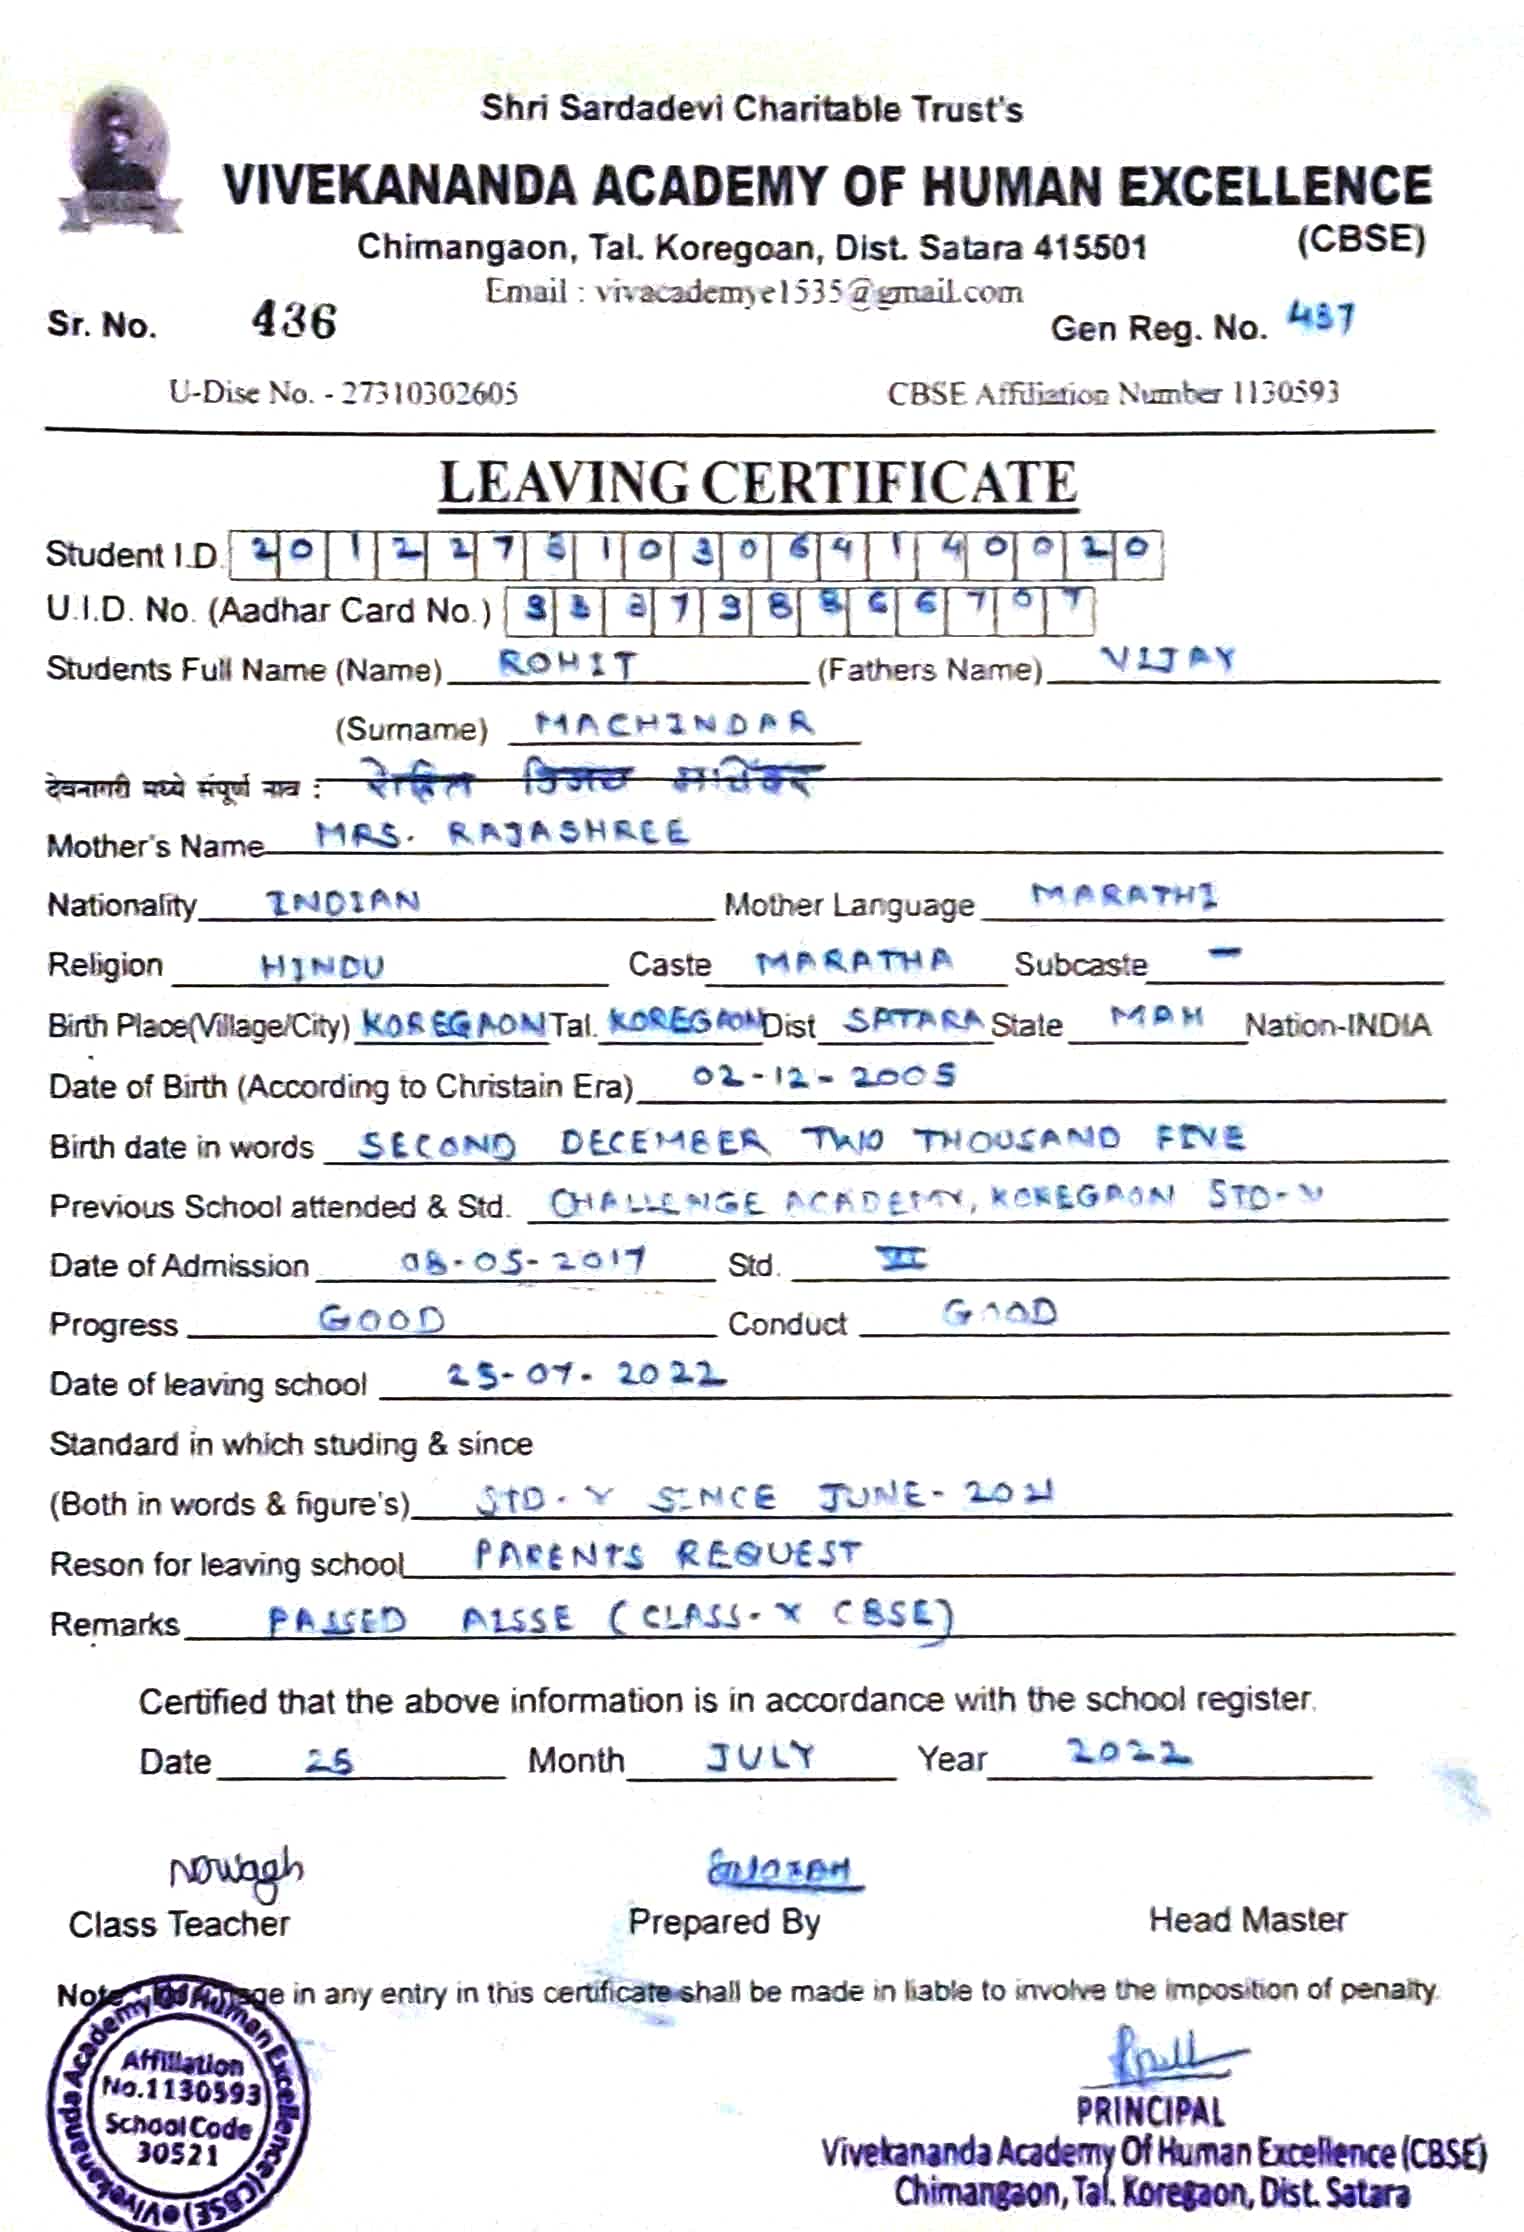 Shri Sardadevi Charitable Trust's
VIVEKANANDA ACADEMY OF HUMAN EXCELLENCE
(CBSE)
Chimangaon, Tal. Koregoan, Dist. Satara 415501
Email : vivacademye1535@gmail.com
Sr. No. 436 Gen Reg. No. 437
U-Dise No. - 27310302605 CBSE Affiliation Number 1130593
LEAVING CERTIFICATE
Student I.D. 2012273103064140020
U.I.D. No. (Aadhar Card No.)
Students Full Name (Name) ROHIT (Fathers Name) VIJAY
(Surname) MACHINDAR
देवनागरी मध्ये संपूर्ण नाव : रोहित विजय
Mother's Name MRS. RAJASHREE
Nationality INDIAN Mother Language MARATHI
Religion HINDU Caste MARATHA Subcaste –
Birth Place(Village/City) KOREGAON Tal. KOREGAON Dist SATARA State MAH Nation-INDIA
Date of Birth (According to Christain Era) 02-12-2005
Birth date in words SECOND DECEMBER TWO THOUSAND FIVE
Previous School attended & Std. CHALLENGE ACADEMY, KOREGAON STD-V
Date of Admission 08-05-2017 Std. VI
Progress GOOD Conduct GOOD
Date of leaving school 25-07-2022
Standard in which studing & since
(Both in words & figure's) STD-X SINCE JUNE-2021
Reson for leaving school PARENTS REQUEST
Remarks PASSED AISSE (CLASS-X CBSE)
Certified that the above information is in accordance with the school register.
Date 25 Month JULY Year 2022
Nowagh
Class Teacher Prepared By Head Master
Note in any entry in this certificate shall be made in liable to involve the imposition of penalty.
Vivekananda Academy Of Human Excellence (CBSE)
Affiliation
No.1130593
School Code
30521
PRINCIPAL
Vivekananda Academy Of Human Excellence (CBSE)
Chimangaon, Tal. Koregaon, Dist. Satara